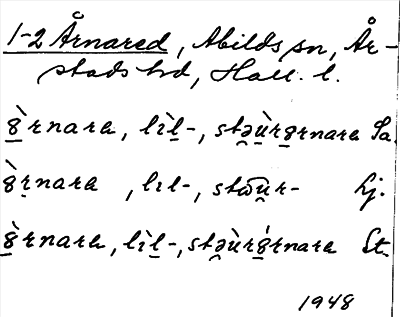 1-2 Årnared, Abilds sn, År-
stads hd, Hall. l.
8̀rnara, lìl-, stəùr8rnara Sa.
8̀rnara, lıl-, Hj.
8̀rnara, lìl-, stəùr8́rnara St.
1948